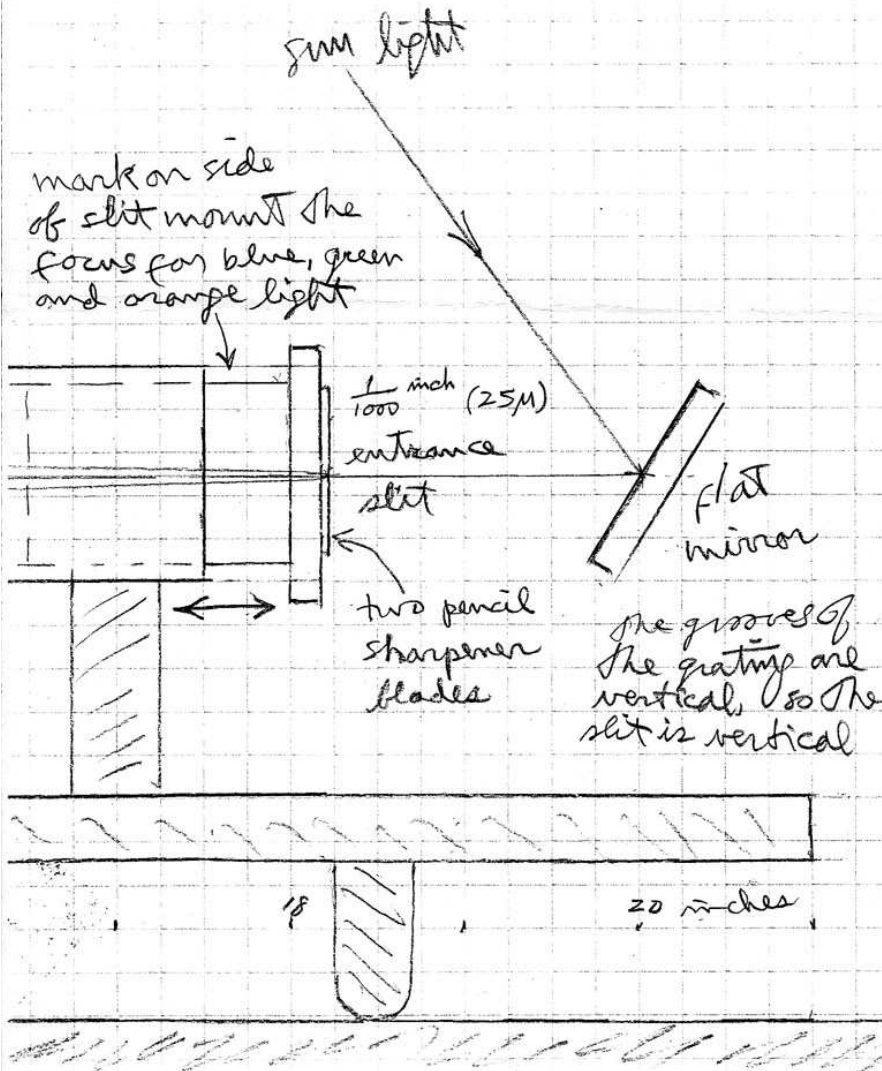 sun light
mark on side
of slit mount the
focus for blue, green
and orange light
1/1000 inch (25μ)
entrance
slit
flat
mirror
two pencil
sharpener
blades
the grooves of
the grating are
vertical, so the
slit is vertical
18
20 inches